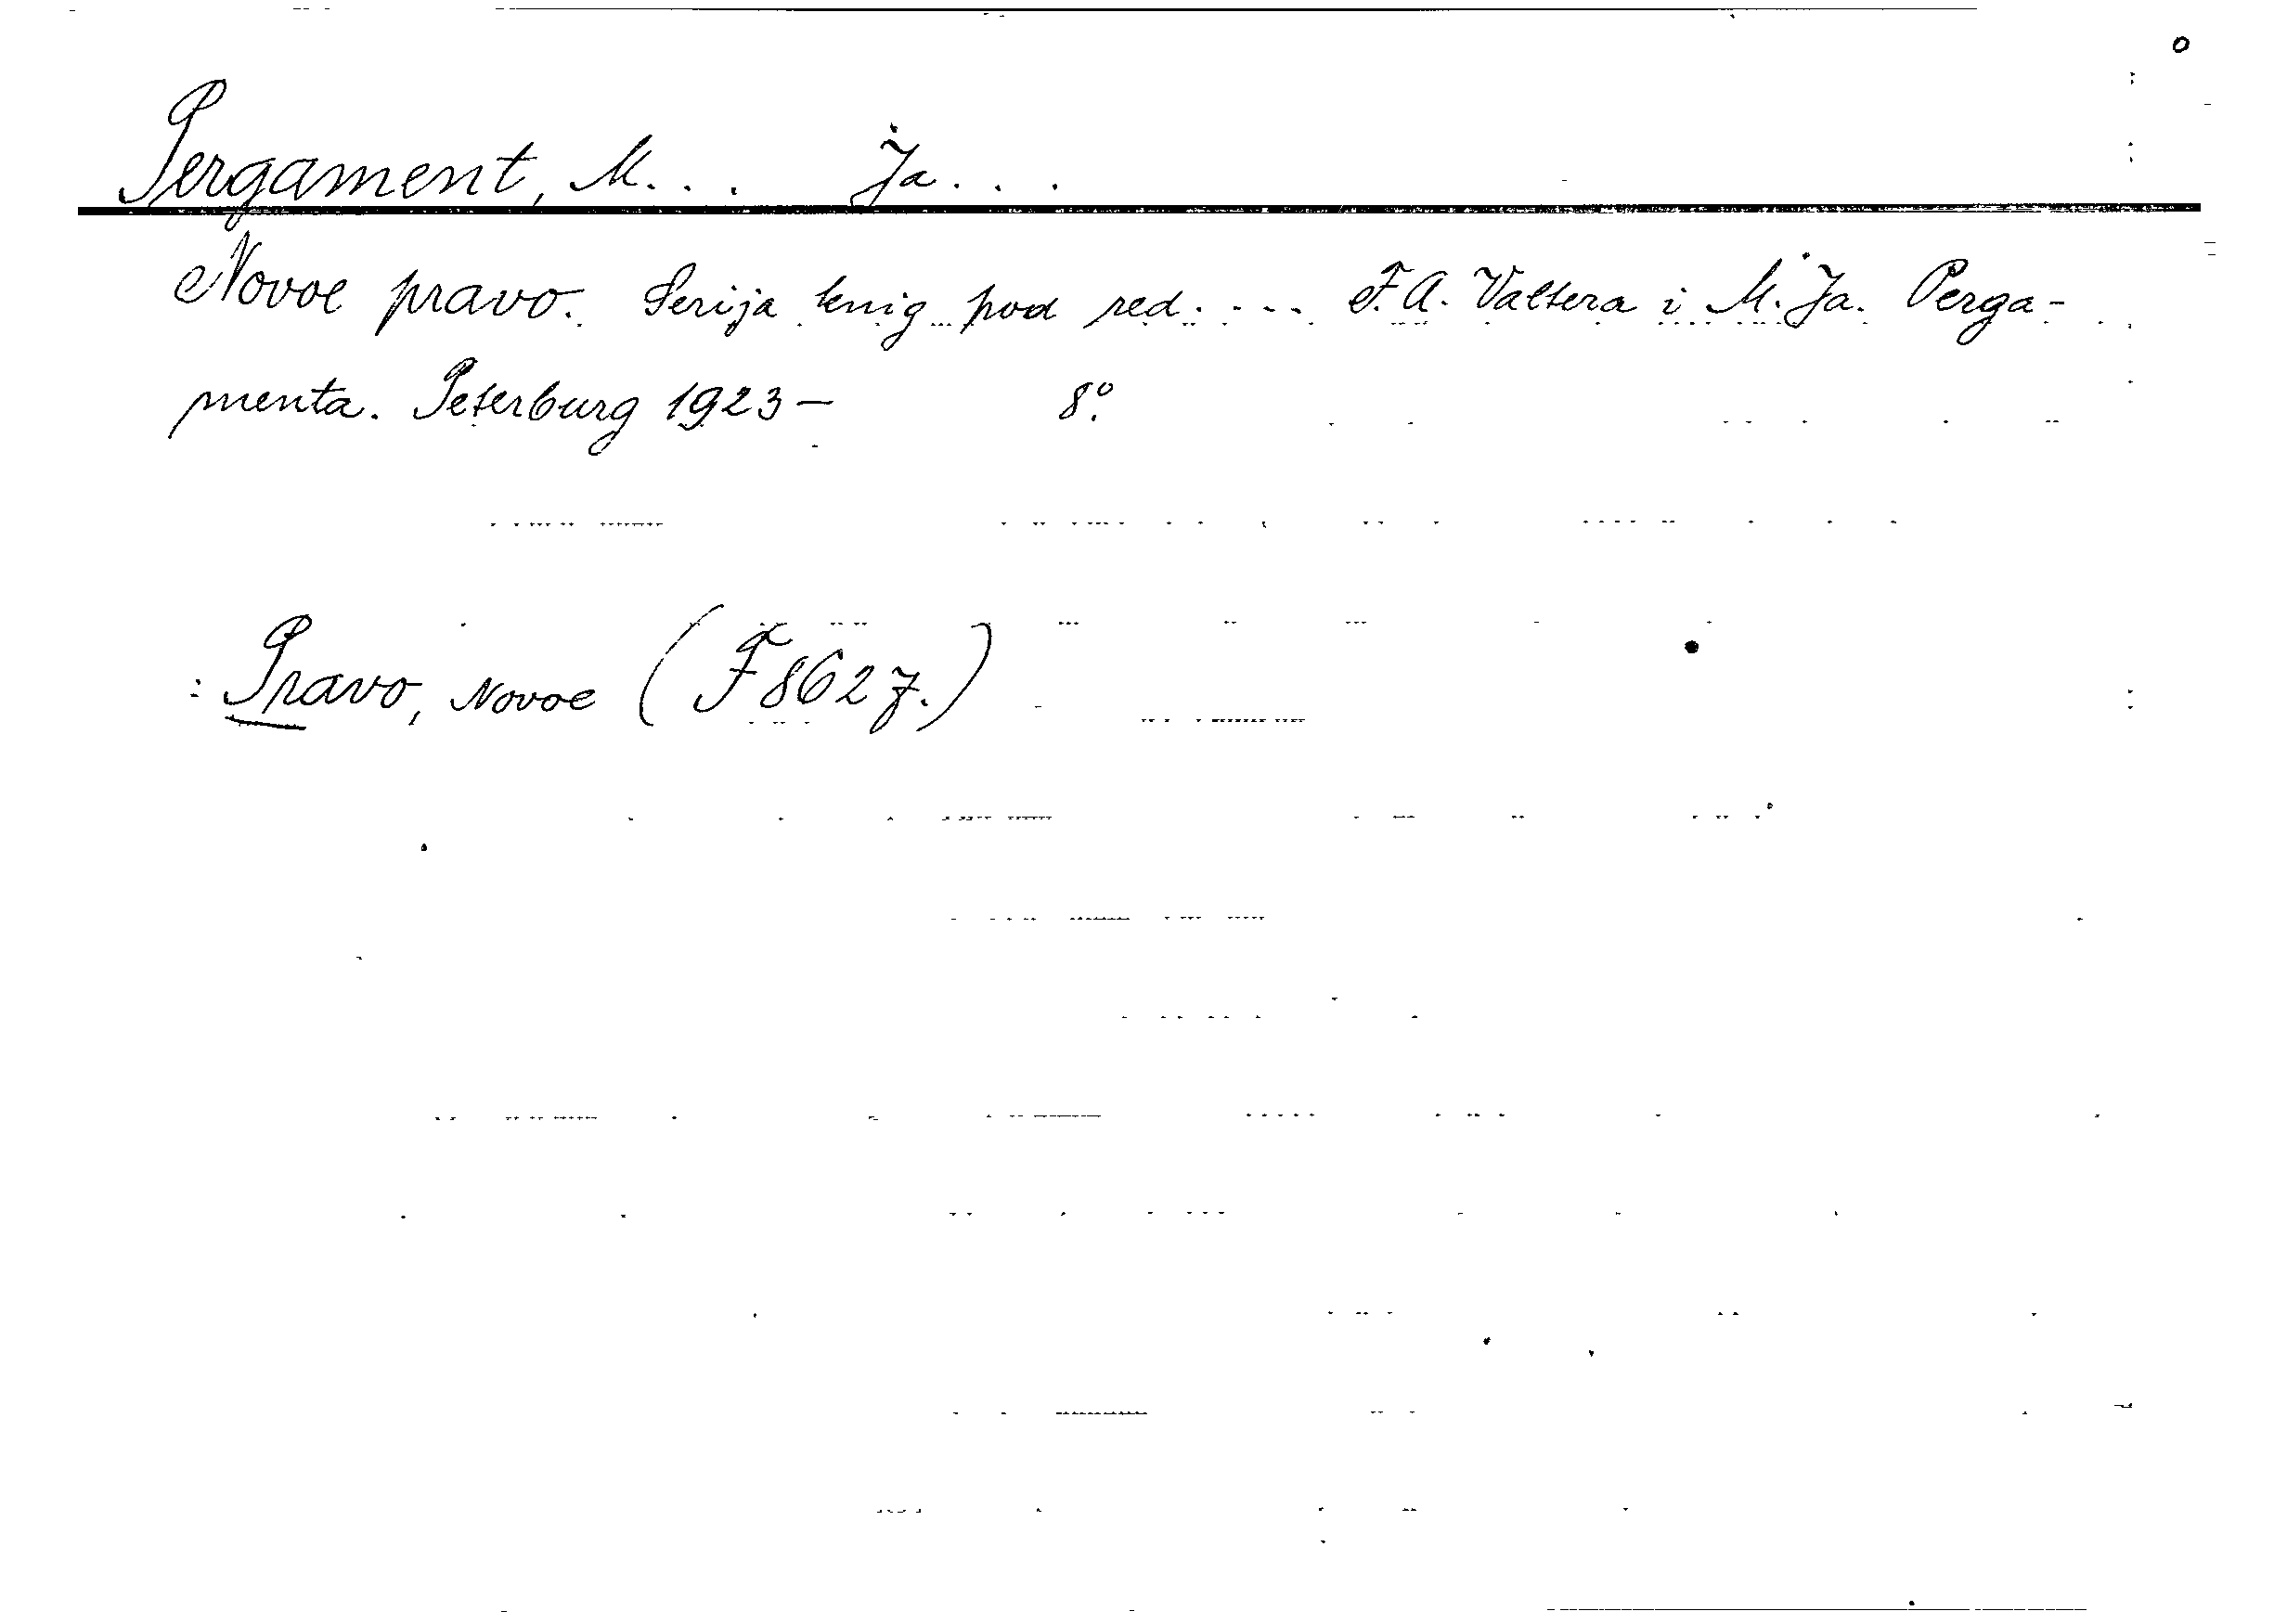 Pergament, M... Ja...
Novoe pravo. Serija knig pod red. ... F. A. Valtera i M. Ja. Perga-
menta. Peterburg 1923— 8°.
: Pravo, Novoe (F 8627.)